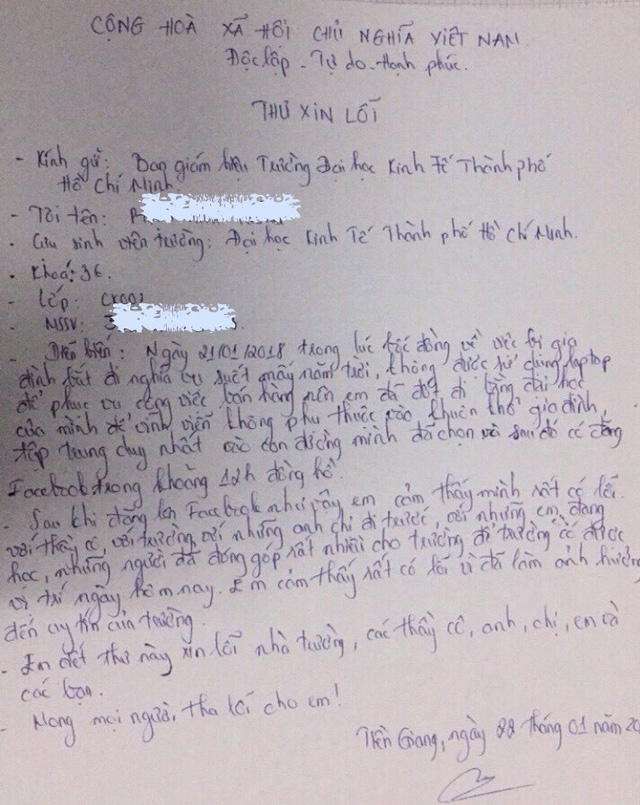 CỘNG HOÀ XÃ HỘI CHỦ NGHĨA VIỆT NAM
Độc lập - Tự do - Hạnh phúc.
THƯ XIN LỖI
- Kính gửi: Ban giám hiệu Trường Đại học Kinh Tế Thành phố
Hồ Chí Minh.
- Tôi tên:
- Cựu sinh viên trường: Đại học Kinh Tế Thành phố Hồ Chí Minh.
- Khoá: 36.
- Lớp:
- MSSV:
- Diễn biến: Ngày 21/01/2018 trong lúc bốc đồng về việc bị gia
đình bắt đi nghĩa vụ suốt mấy năm trời, không được sử dụng laptop
để phục vụ công việc bán hàng nên em đã đốt đi bằng đại học
của mình để vĩnh viễn không phụ thuộc vào khuôn khổ gia đình,
tập trung duy nhất vào con đường mình đã chọn và sau đó có đăng
Facebook trong khoảng 12h đồng hồ.
- Sau khi đăng lên Facebook như vậy em cảm thấy mình rất có lỗi
với thầy cô, với trường, với những anh chị đi trước, với những em đang
học, những người đã đóng góp rất nhiều cho trường để trường có được
vị trí ngày hôm nay. Em cảm thấy rất có lỗi vì đã làm ảnh hưởng
đến uy tín của trường.
- Em viết thư này xin lỗi nhà trường, các thầy cô, anh, chị, em và
các bạn.
- Mong mọi người, tha lỗi cho em!
Tiền Giang, ngày 22 tháng 01 năm 20